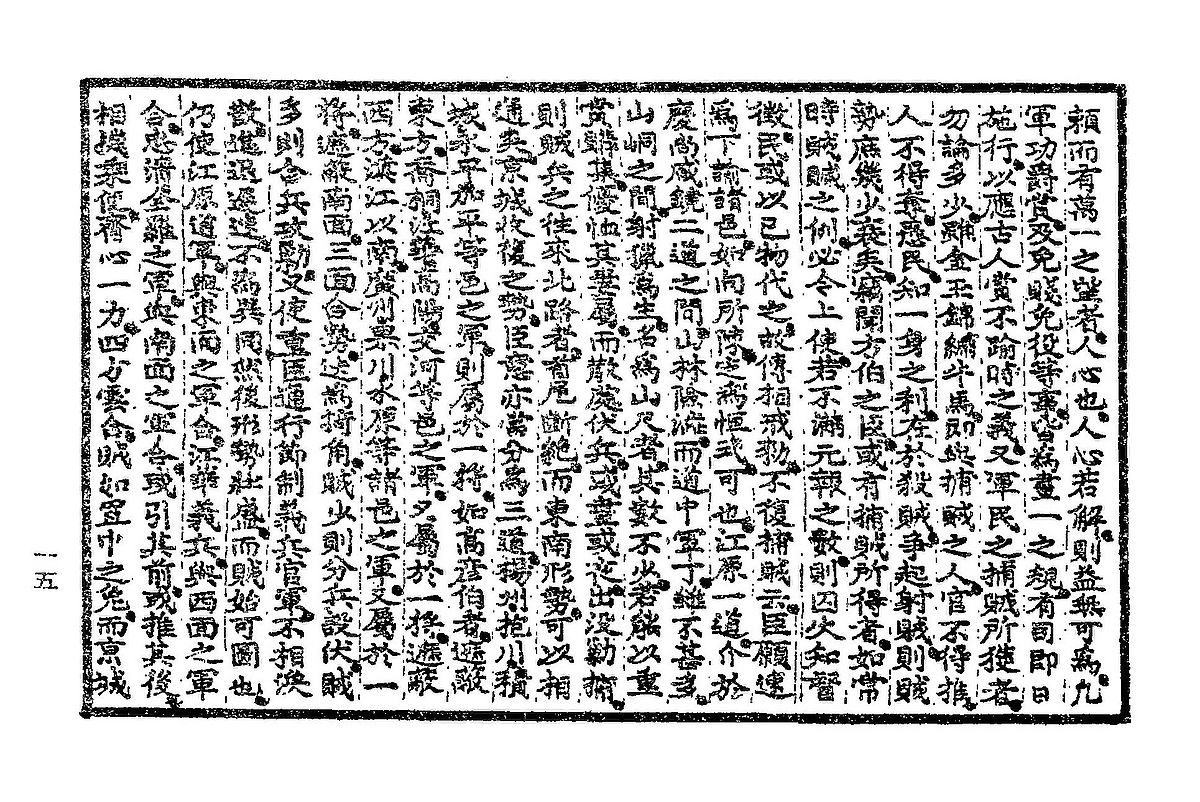 賴而有萬一之望者人心也人心若解則益無可爲凡
軍功爵賞及免賤免役等事皆爲畫一之規有司卽日
施行以應古人賞不踰時之義又軍民之捕賊所獲者
勿論多少雖金玉錦繡牛馬捕賊之人官不得推
人不得奪愚民知一身之利在於殺賊爭起射賊則賊
勢庶幾少衰矣竊聞方伯之臣或有捕賊所得者如常
時賊贓之例必令上使若不滿元報之數則囚次知督
徵民或以已物代之故傳相戒勑不復捕賊云臣願速
爲下諭諸邑如向所陳定爲恒式可也江原一道介於
慶尙咸鏡二道之間山林險而道中軍丁雖不甚多
山峒之間射獵爲生名爲山尺者其數不少若能以重
賞難集優恤其妻屬而散處伏兵或晝或夜出沒勦捕
則賊兵之往來北路者首尾斷絶而東南形勢可以相
通矣京城收復之勢臣意亦當分爲三道楊州抱川積
城永平加平等邑之軍則屬於一將如高彦伯者遮蔽
東方喬桐江華高陽交河等邑之軍又屬於一將遮蔽
西方渡江以南廣州果川水原等諸邑之軍又屬於一
將遮蔽南面三面合勢迭爲掎角賊少則分兵設伏賊
多則合兵攻勦又使重臣通行節制義兵官軍不相渙
散進退遲速不爲異同然後形勢壯盛而賊始可圖也
仍使江原道軍與東面之軍合江華義兵與西面之軍
合忠淸全羅之軍與南面之軍合或引其前或推其後
相機乘便齊心一力四方雲合賊如罝中之兔而京城
一五